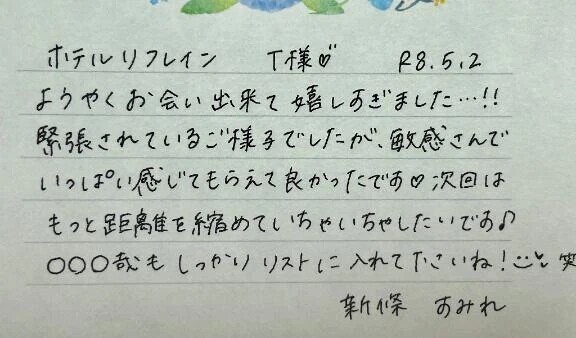 ホテルリフレイン T様♡ R8.5.2
ようやくお会い出来て嬉しすぎました…!!
緊張されているご様子でしたが、敏感さんで
いっぱい感じてもらえて良かったです♡次回は
もっと距離を縮めていちゃいちゃしたいです♪
〇〇〇哉もしっかりリストに入れて下さいね!笑
新條 すみれ